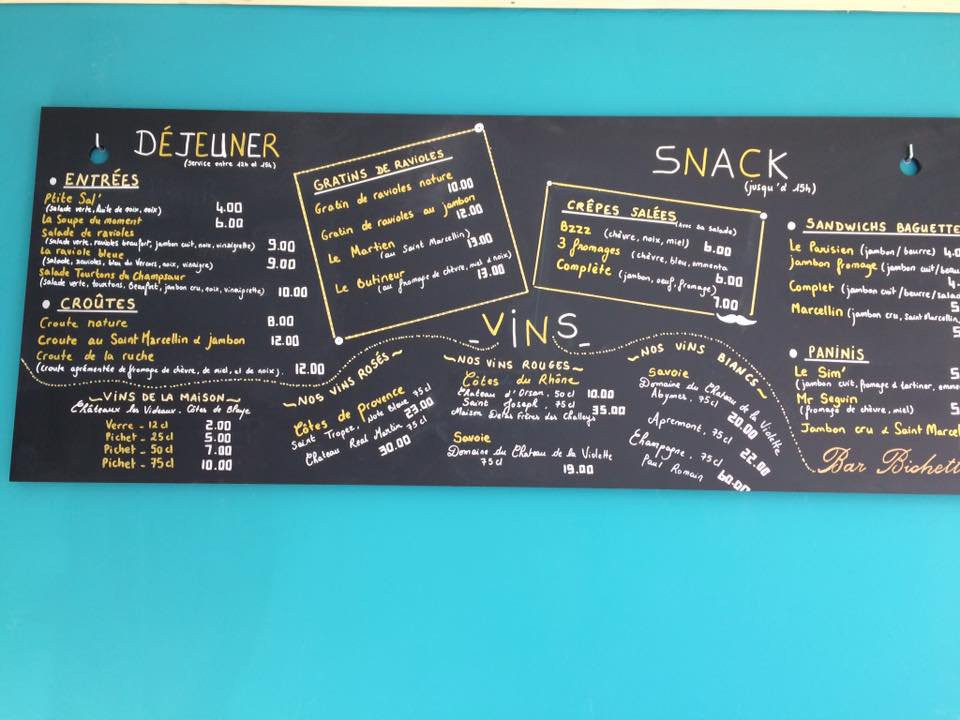 DÉJEUNER
(Service entre 12h et 15h)
ENTRÉES
Ptite Sal' 4.00
(Salade verte, huile de noix, noix)
La Soupe du moment 6.00
Salade de ravioles
(Salade verte, ravioles beaufort, jambon cuit, noix, vinaigrette) 9.00
La raviole bleue
(Salade, ravioles, bleu du Vercors, noix, vinaigre) 9.00
Salade Tourtons du Champsaur
(Salade verte, tourtons, Beaufort, jambon cru, noix, vinaigrette) 10.00
CROÛTES
Croute nature 8.00
Croute au Saint Marcellin & jambon 12.00
Croute de la ruche
(Croute agrémentée de fromage de chèvre, de miel, et de noix). 12.00
GRATINS DE RAVIOLES
Gratin de ravioles nature
10.00
Gratin de ravioles au jambon
12.00
Le Martien
(au Saint Marcellin)
13.00
Le Butineur
(au fromage de chèvre, miel & noix)
13.00
SNACK
(jusqu'à 15h)
CRÊPES SALÉES
(avec sa salade)
Bzzz (chèvre, noix, miel) 6.00
3 fromages (chèvre, bleu, emmental
6.00
Complète (jambon, oeuf, fromage)
7.00
SANDWICHS BAGUETTE
Le Parisien (jambon/beurre) 4.0
Jambon fromage (jambon cuit/beu
4.
Complet (jambon cuit/beurre/salad
5
Marcellin (jambon cru, Saint Marcellin,
5
PANINIS
Le Sim' 5
(jambon cuit, fromage à tartiner, emm
Mr Seguin
(fromage de chèvre, miel) 5
Jambon cru & Saint Marcel
Bar Bichett
VINS
VINS DE LA MAISON
Verre - 12 cl 2.00
Pichet - 25 cl 5.00
Pichet - 50 cl 7.00
Pichet - 75 cl 10.00
NOS VINS ROSÉS
Côtes de Provence
Saint Tropez, Note Bleue 75 cl
23.00
Chateau Real Martin 75 cl
30.00
NOS VINS ROUGES
Côtes du Rhône
Chateau d'Orsan, 50 cl 10.00
Saint Joseph, 75 cl 35.00
Maison Delas Frères des Challeys
Savoie
Domaine du Chateau de la Violette
75 cl 19.00
NOS VINS BLANCS
Savoie
Domaine du Chateau de la Violette
Abymes, 75 cl 20.00
Apremont, 75 cl 22.00
Champagne, 75 cl
Paul Romain 60.00